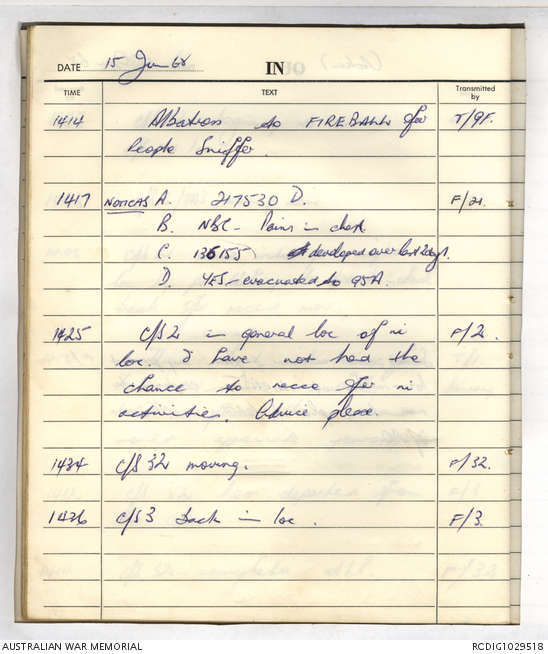 DATE 15 Jun 68 IN
TIME TEXT Transmitted by
1414 Albatross to FIREBALL for T/9F.
People Sniffer.
1417 NOTICAS A. 217530 D. F/21.
B. NBC - Pains in chest
C. 136155 developed over last 2 days.
D. YES - evacuated to 95A.
1425 C/S 2 in general loc of ni F/2.
loc. I have not had the
chance to recce for ni
activities. Advice please.
1434 C/S 32 moving. F/32.
1426 C/S 3 back in loc. F/3.
AUSTRALIAN WAR MEMORIAL RCDIG1029518